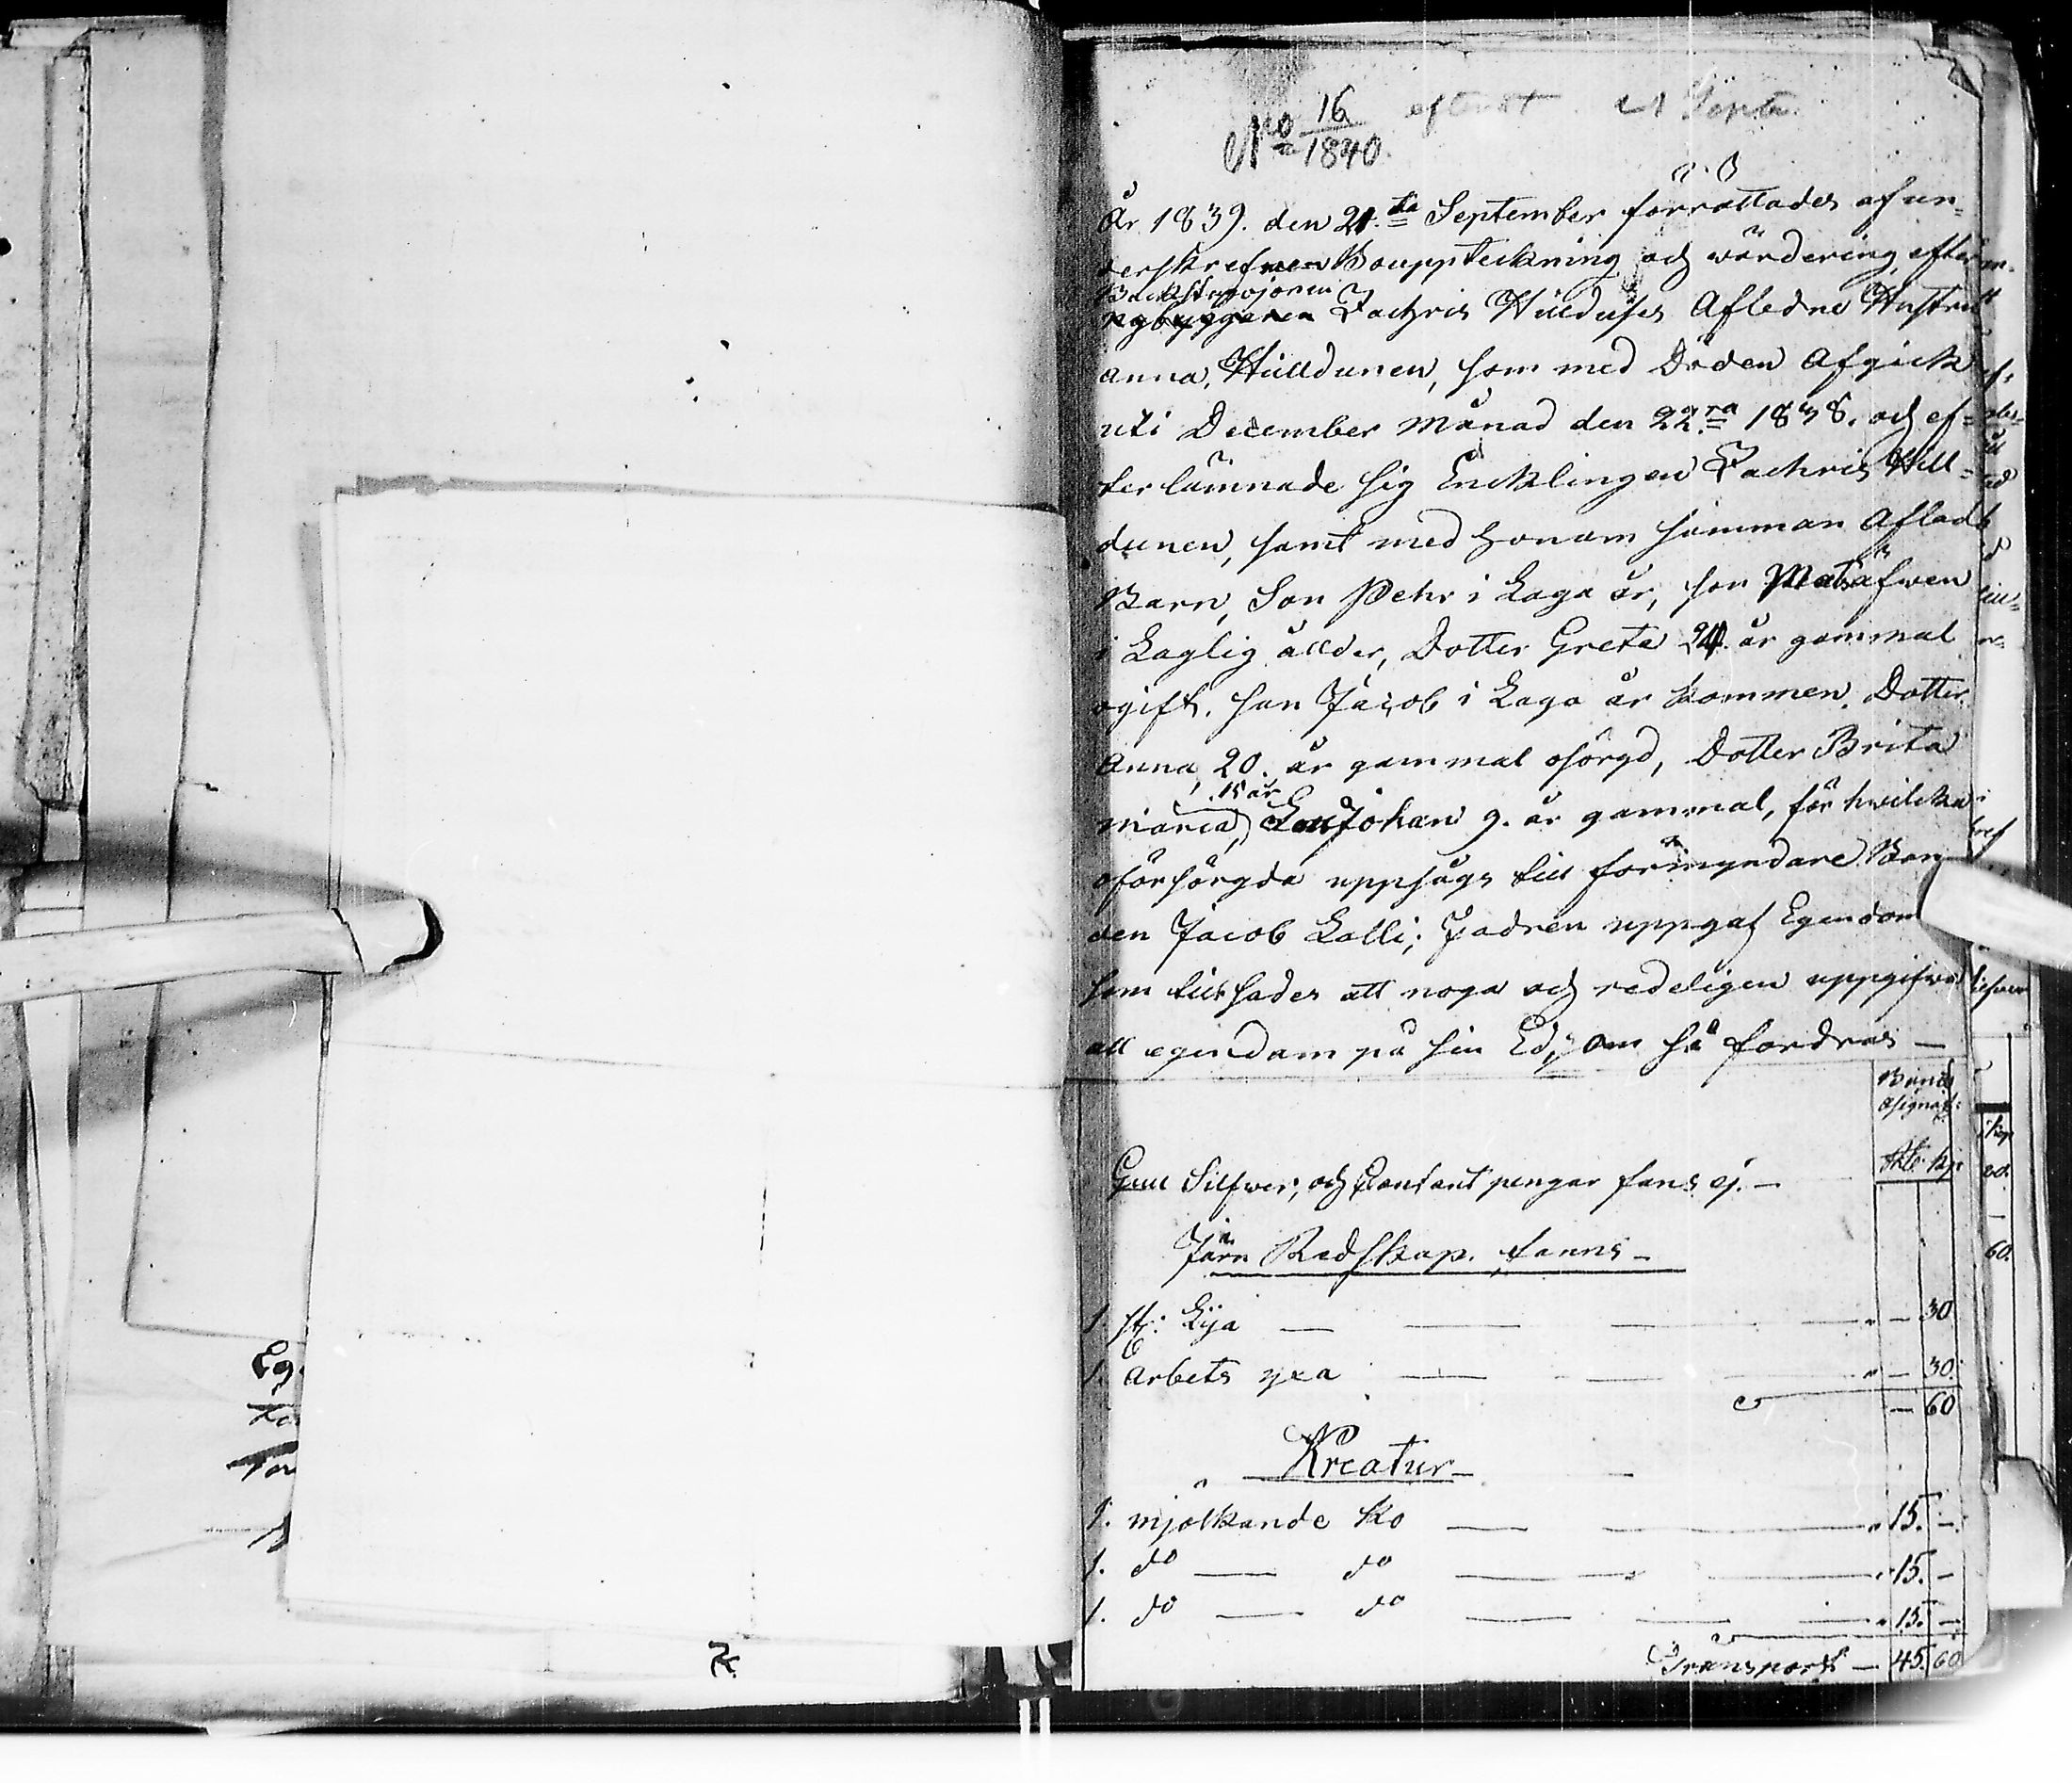 No 16/1840.
År 1839. den 21.ta September förrättades af un=
derskrefnen Bouppteckning och värdering, efter
Backstugojonen
Nybyggaren Zachris Hulduses Afledne Hustru
Anna, Hulldunen, som med Döden Afgick
uti December Månad den 22.ra 1838. och ef=
terlämnade sig Encklingen Zachris Hull=
dunen, samt med honom samman Aflad
Barn, Son Pehr i Laga år, son Mats äfwen
i Laglig ållder, Dotter Greta 24. år gammal
ogift. son Jacob i Laga år kommen. Dotter
Anna 20. år gammal osörgd, Dotter Brita
15 år
maria, Son Johan 9. år gammal, för hwilcka
oförsörgda uppsågs till förmyndare Bon
den Jacob Lalli; Fadren uppgaf Egendom
som tillsades att noga och redeligen uppgifwa
all egendom på sin Ed, om så fordras —
Banco
Assignat:
Rbl. kp.
Gull Silfwer, och Contant pengar fans ej. —
Järn Redskap. fanns —
1. st: Lija — — 30
1. Arbets yxa — — 30.
— 60
Kreatur
1. mjölkande Ko — 15. —
1. do — do — 15. —
1. do — do — 15. —
Transport — 45. 60
Eg